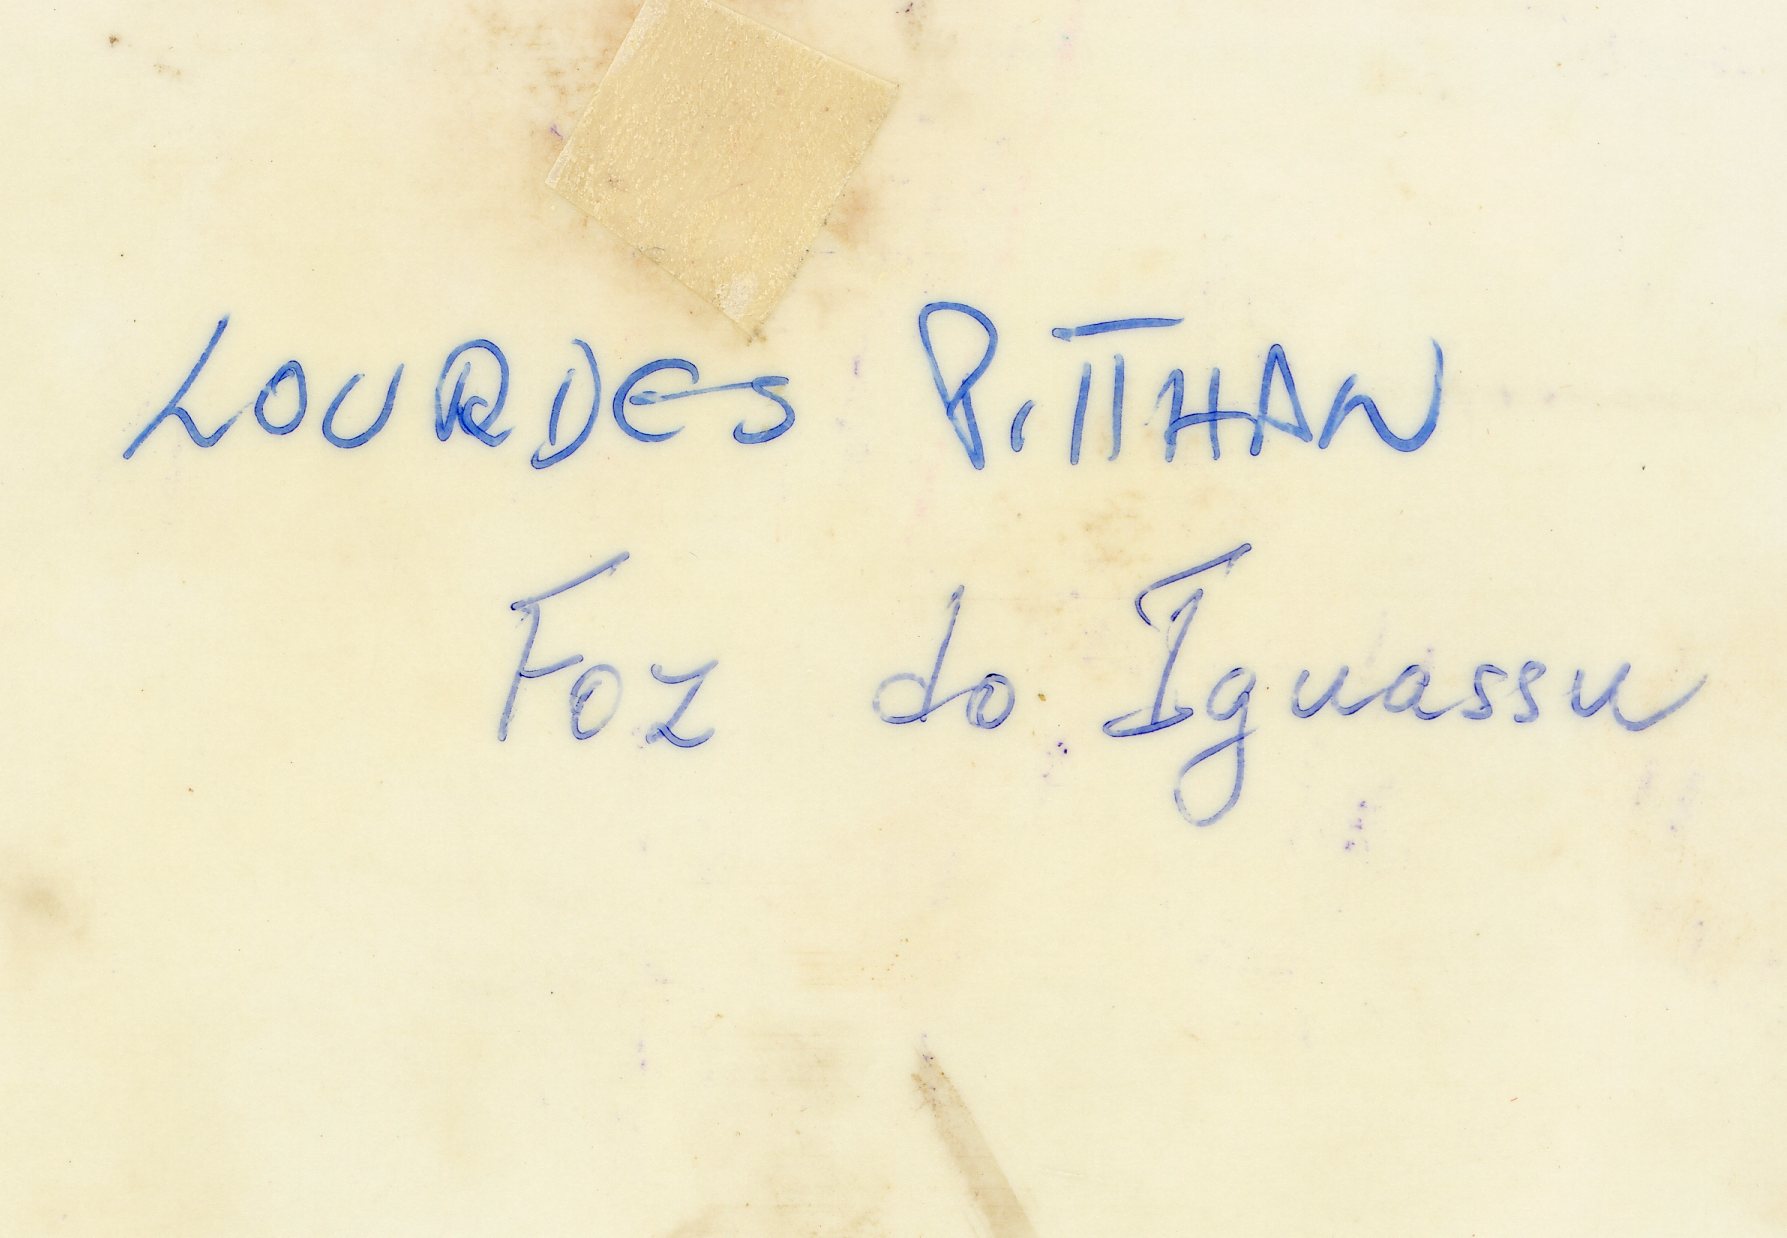 LOURDES PITTHAN
Foz do Iguassu